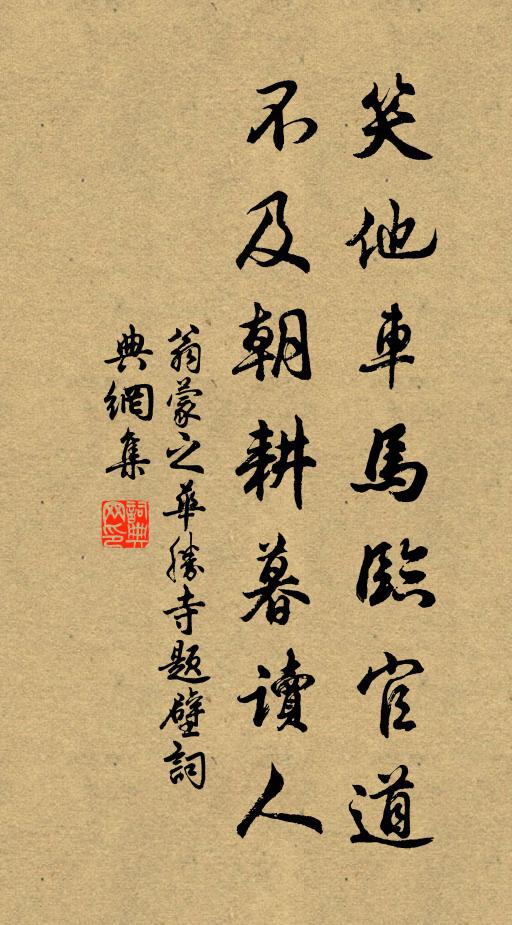 笑他車馬臨官道
不及朝耕暮讀人
翁蒙之華勝寺題壁詞
典網集
詞典網印